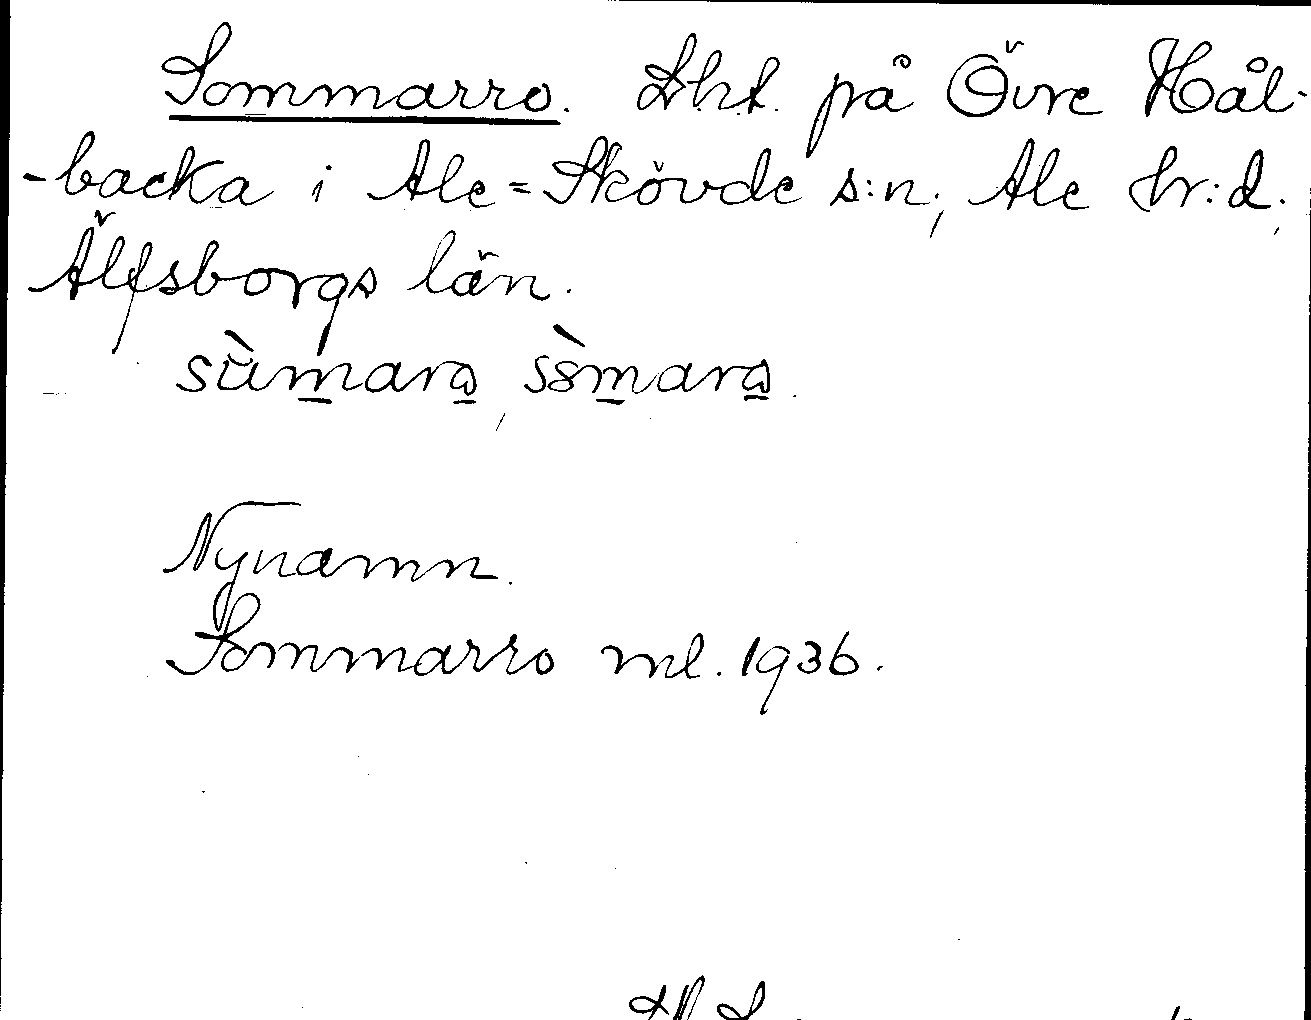 Sommarro. Lht. på Övre Hål-
-backa i Ale=Skövde s:n, Ale hr:d,
Älfsborgs län.
Nynamn.
Sommarro ml. 1936.